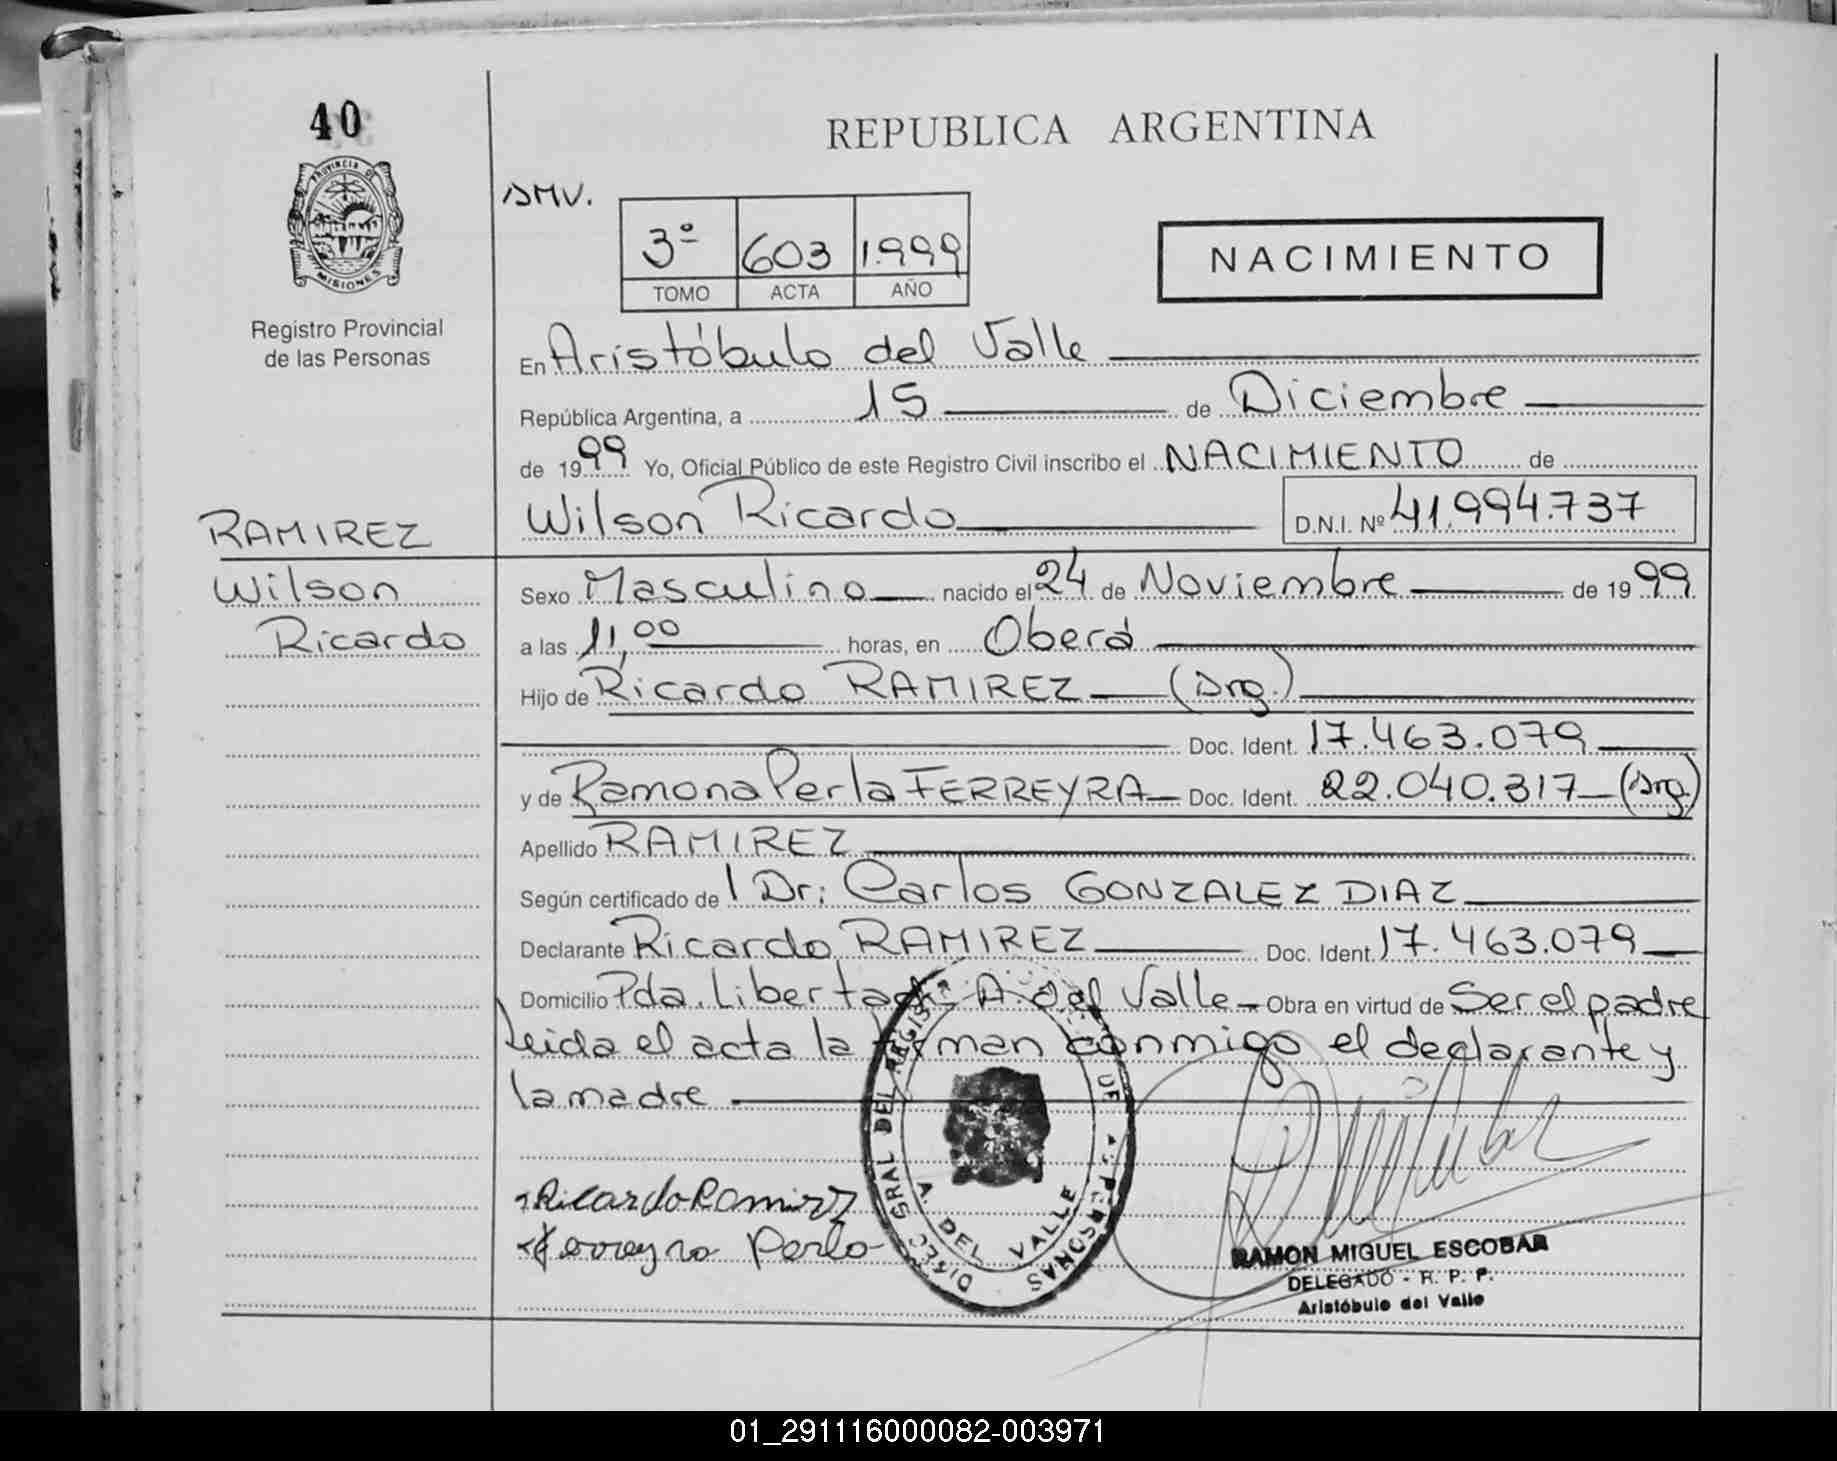 40
PROVINCIA DE
MISIONES
Registro Provincial
de las Personas
RAMIREZ
Wilson
Ricardo
REPUBLICA ARGENTINA
3º 603 1.999
TOMO ACTA AÑO
NACIMIENTO
En Aristóbulo del Valle
República Argentina, a 15 de Diciembre
de 1999 Yo, Oficial Público de este Registro Civil inscribo el NACIMIENTO de
Wilson Ricardo D.N.I. Nº 41.994.737
Sexo Masculino nacido el 24 de Noviembre de 1999
a las 11,00 horas, en Oberá
Hijo de Ricardo RAMIREZ (Arg.)
Doc. Ident. 17.463.079
y de Ramona Perla FERREYRA Doc. Ident. 22.040.317 (Arg.)
Apellido RAMIREZ
Según certificado de l Dr: Carlos GONZALEZ DIAZ
Declarante Ricardo RAMIREZ Doc. Ident. 17.463.079
Domicilio Pda. Libertad - A. del Valle Obra en virtud de Ser el padre
Leida el acta la firman conmigo el declarante y
la madre
Ricardo Ramirez
Ferreyra Perla
A. DEL VALLE
RAMON MIGUEL ESCOBAR
DELEGADO - R. P. P.
Aristóbulo del Valle
01_291116000082-003971